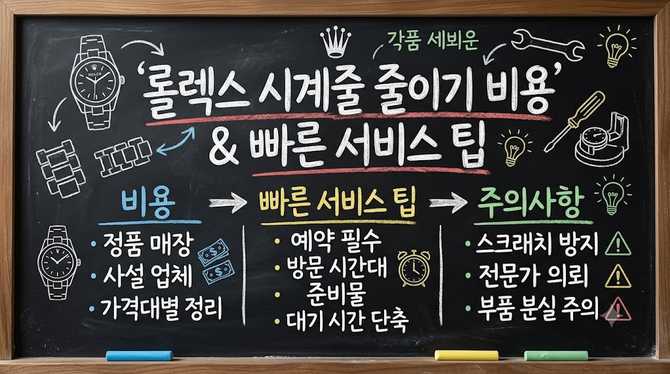 각품 세뵈운
ROLEX
'롤렉스 시계줄 줄이기 비용'
& 빠른 서비스 팁
비용 → 빠른 서비스 팁 → 주의사항
• 정품 매장
• 사설 업체
• 가격대별 정리
• 예약 필수
• 방문 시간대
• 준비물
• 대기 시간 단축
• 스크래치 방지
• 전문가 의뢰
• 부품 분실 주의